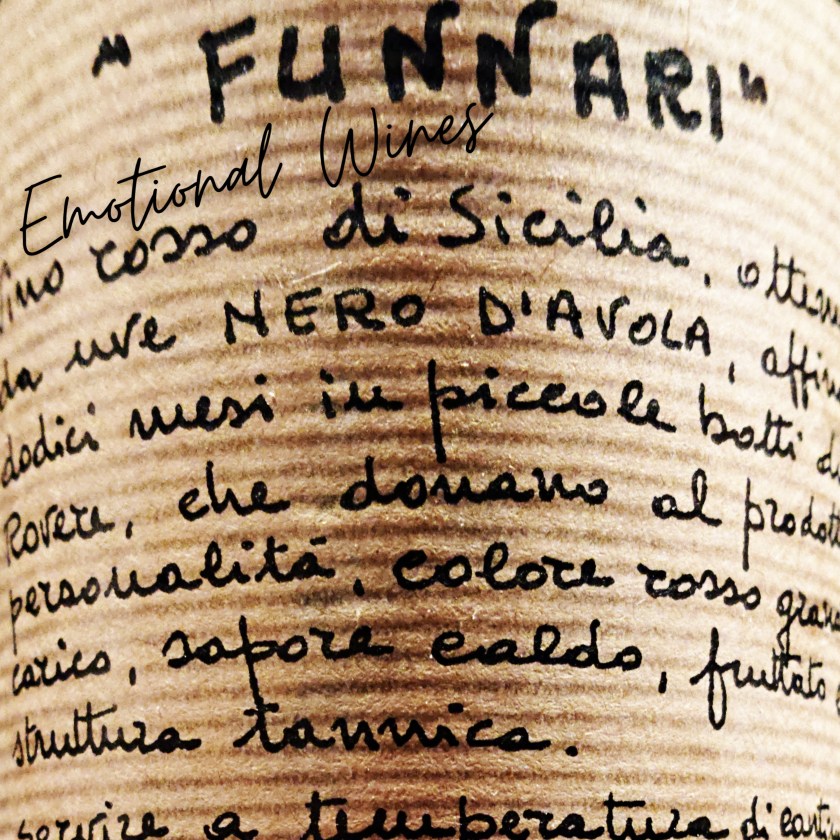 "FUNNARI"
Emotional Wines
Vino rosso di Sicilia, otten
da uve NERO D'AVOLA, affin
dodici mesi in piccole botti di
Rovere, che donano al prodott
personalità, colore rosso grana
carico, sapore caldo, fruttato
struttura tannica.
servire a temperatura di cant